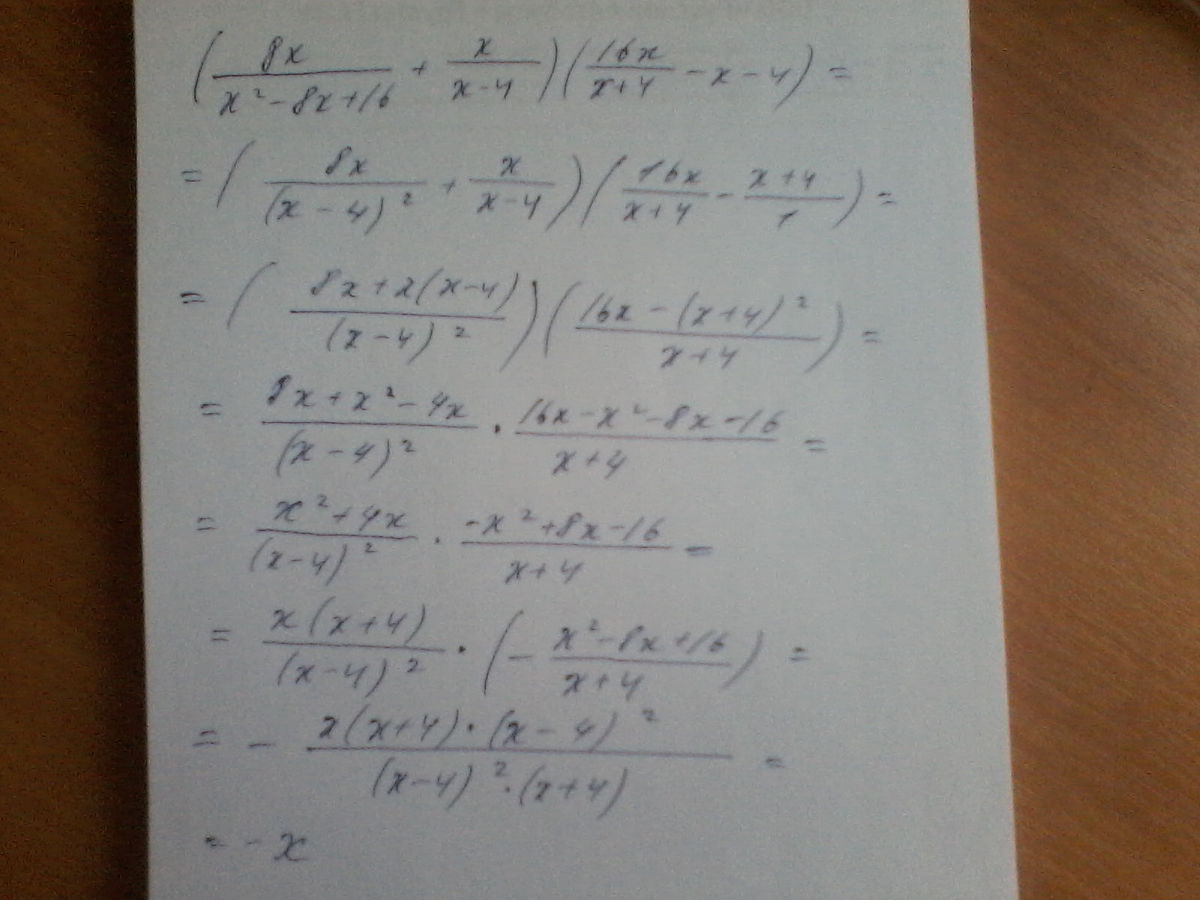 (8x/(x²-8x+16) + x/(x-4))(16x/(x+4) - x - 4) =
= (8x/(x-4)² + x/(x-4))(16x/(x+4) - (x+4)/1) =
= ((8x+x(x-4))/(x-4)²)((16x-(x+4)²)/(x+4)) =
= (8x+x²-4x)/(x-4)² · (16x-x²-8x-16)/(x+4) =
= (x²+4x)/(x-4)² · (-x²+8x-16)/(x+4) =
= x(x+4)/(x-4)² · (-(x²-8x+16)/(x+4)) =
= - x(x+4)·(x-4)²/((x-4)²·(x+4)) =
= -x